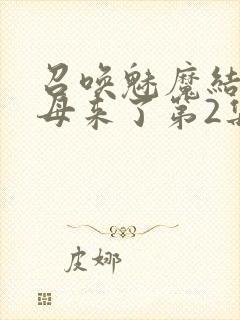 召唤魅魔结
母来了第2集
皮娜